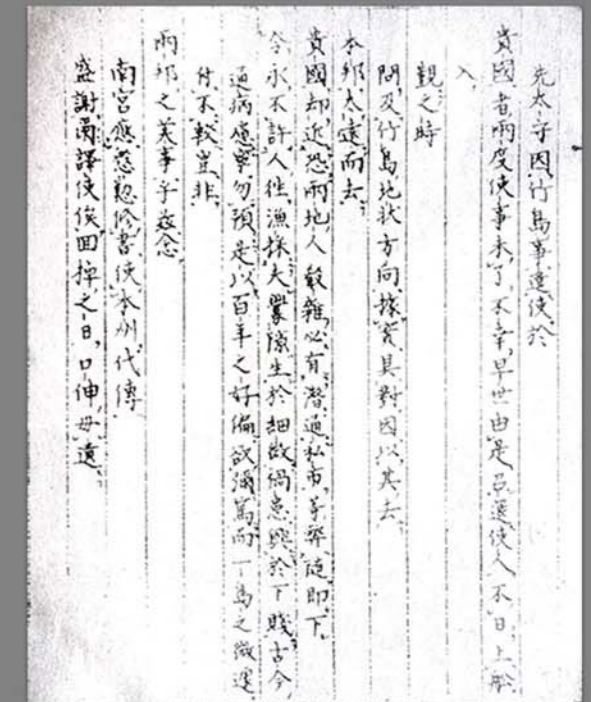 先太守因竹島事遣使於
貴國者兩度使事未了不幸早世由是召還使人不日上船
入
覲之時
問及竹島地狀方向據實具對因以其去
本邦太遠而去
貴國却近恐兩地人殽雜必有潛通私市等弊隨即下
令永不許人往漁採夫釁隙生於細故禍患興於下賤古今
通病慮寧勿預是以百年之好偏欲彌篤而一島之微遽
付不較豈非
兩邦之美事乎茲念
南宮應慇懃修書使本州代傳
盛謝兩譯使俟回掉之日口伸毋遺